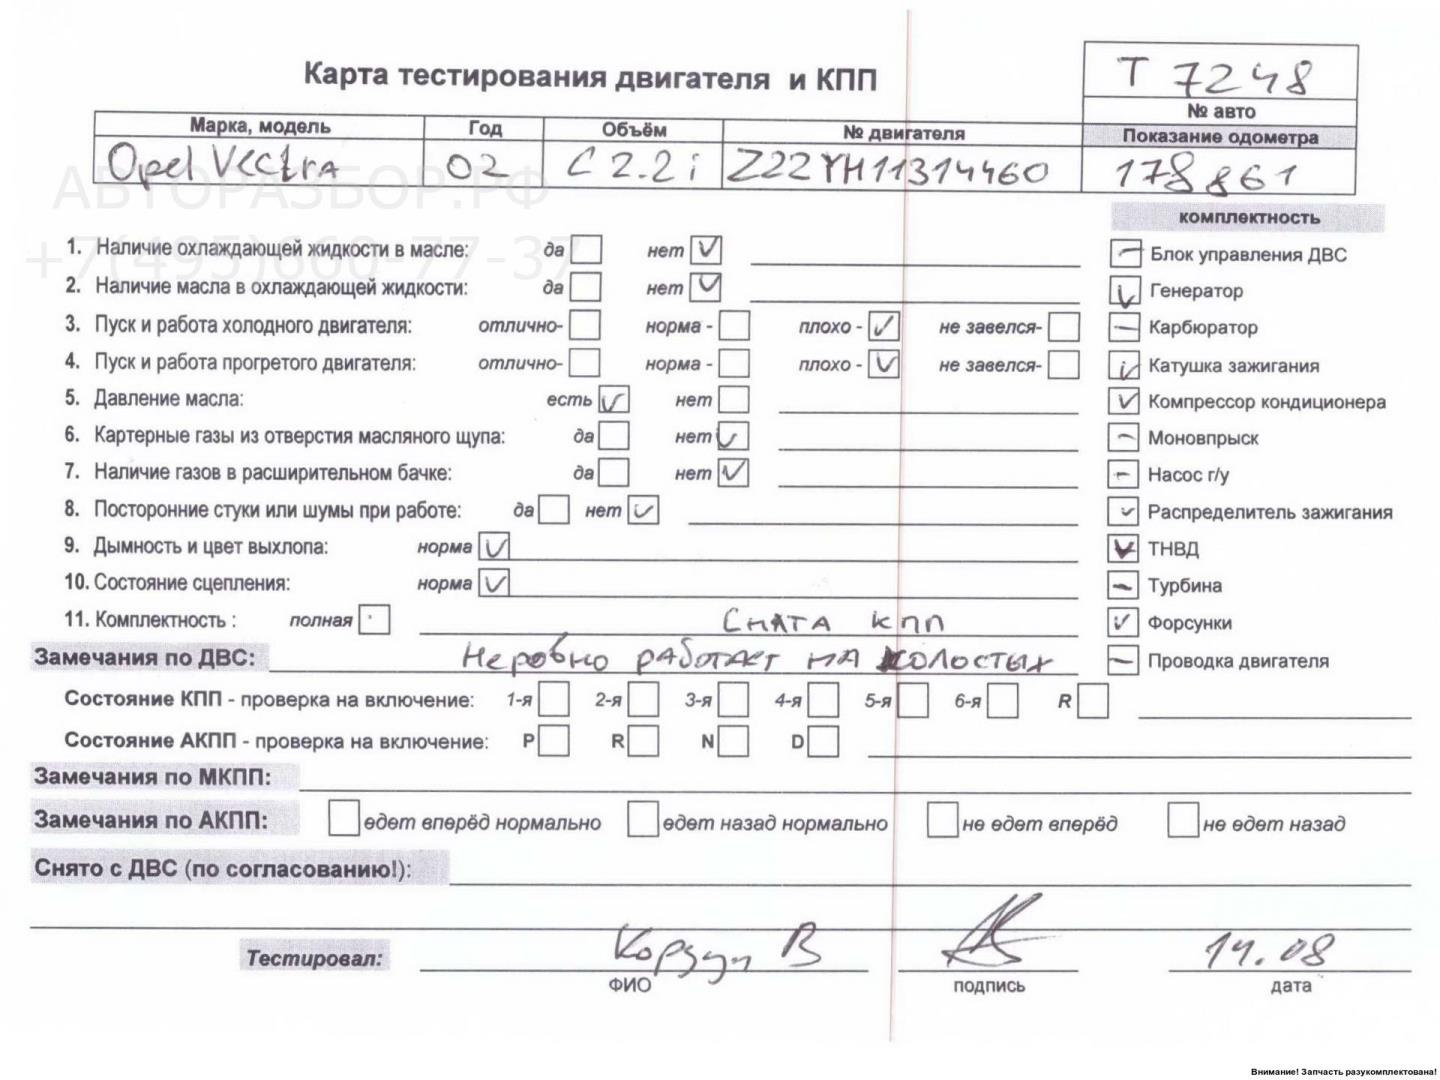 Карта тестирования двигателя и КПП
Т 7248
№ авто
Марка, модель Год Объём № двигателя Показание одометра
Opel Vectra 02 C 2.2 i Z22YH11314460 178861
АВТОРАЗБОР.РФ
+7(495)660-77-37
комплектность
1. Наличие охлаждающей жидкости в масле: да нет ✓
Блок управления ДВС
2. Наличие масла в охлаждающей жидкости: да нет ✓
Генератор
3. Пуск и работа холодного двигателя: отлично- норма - плохо - ✓ не завелся-
Карбюратор
4. Пуск и работа прогретого двигателя: отлично- норма - плохо - ✓ не завелся-
Катушка зажигания
5. Давление масла: есть ✓ нет
Компрессор кондиционера
6. Картерные газы из отверстия масляного щупа: да нет ✓
Моновпрыск
7. Наличие газов в расширительном бачке: да нет ✓
Насос г/у
8. Посторонние стуки или шумы при работе: да нет ✓
Распределитель зажигания
9. Дымность и цвет выхлопа: норма ✓
ТНВД
10. Состояние сцепления: норма ✓
Турбина
11. Комплектность : полная Снята кпп
Форсунки
Замечания по ДВС: Неровно работает на холостых
Проводка двигателя
Состояние КПП - проверка на включение: 1-я 2-я 3-я 4-я 5-я 6-я R
Состояние АКПП - проверка на включение: P R N D
Замечания по МКПП:
Замечания по АКПП: едет вперёд нормально едет назад нормально не едет вперёд не едет назад
Снято с ДВС (по согласованию!):
Тестировал: Корзун В 14.08
ФИО подпись дата
Внимание! Запчасть разукомплектована!